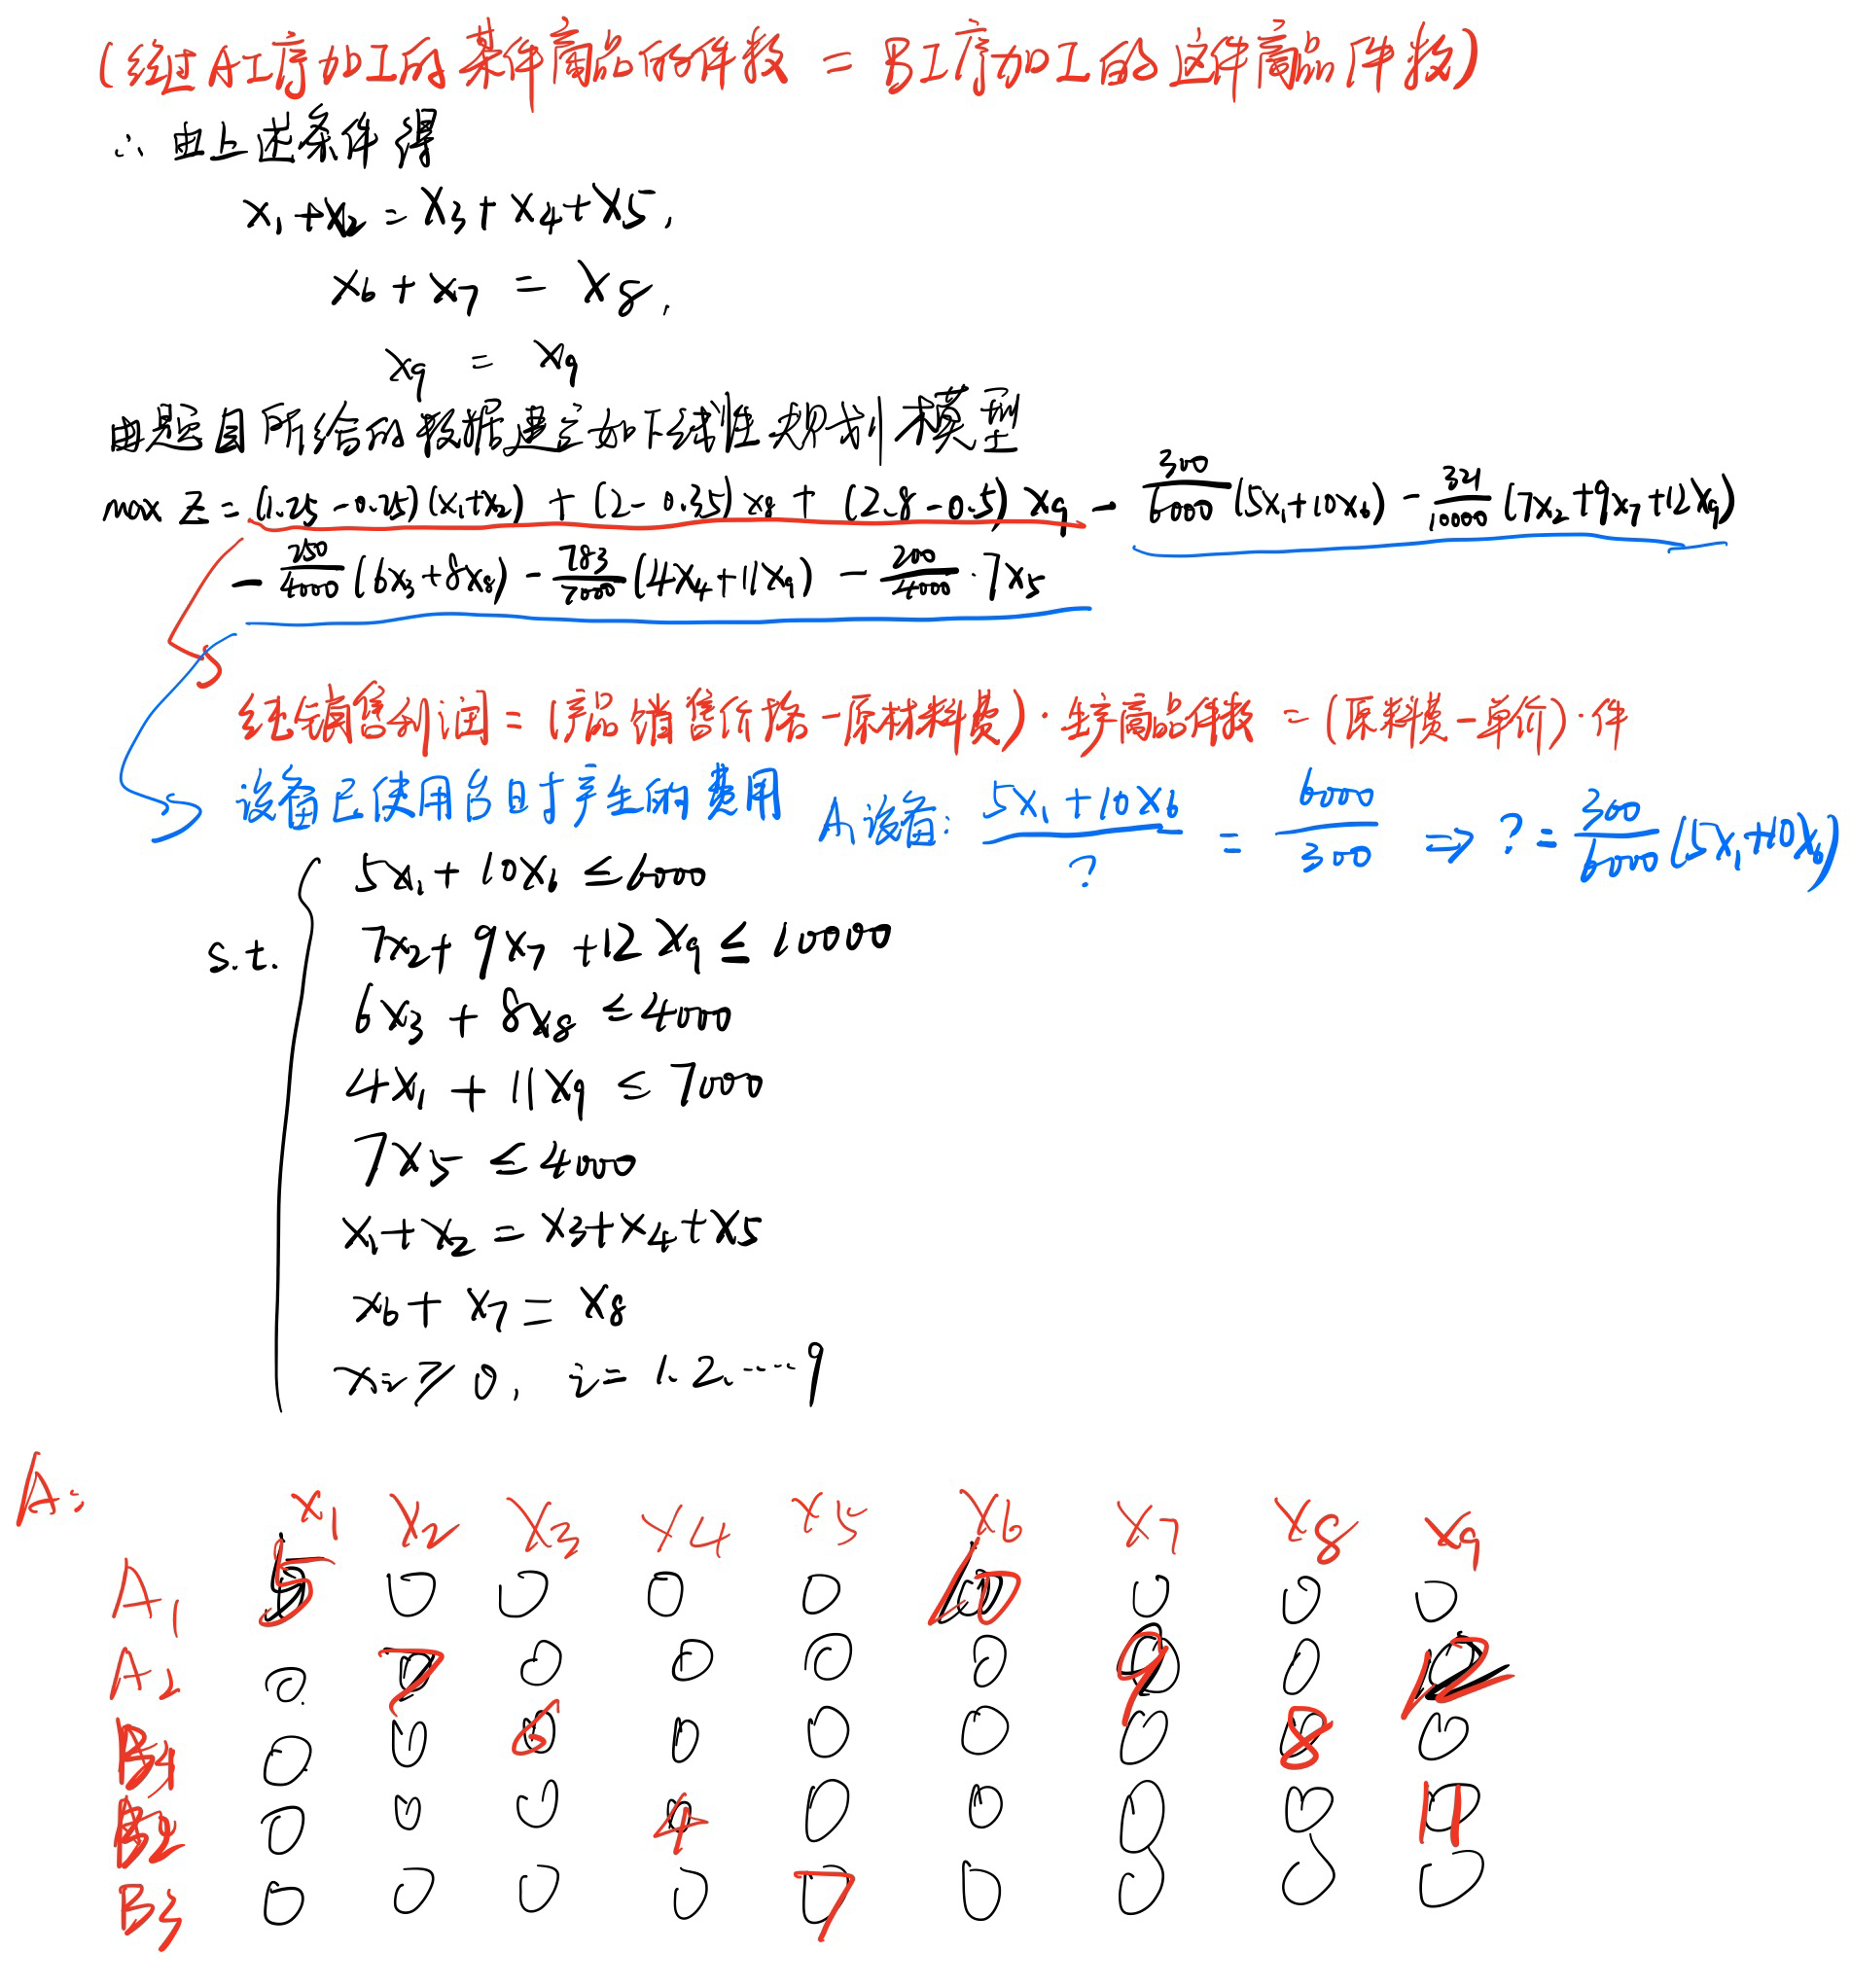 (经过A工序加工的某件商品的件数 = B工序加工的这件商品件数)
∴ 由上述条件得
x₁+x₂ = x₃+x₄+x5,
x₆+x₇ = x₈,
x₉ = x₉
由题目所给的数据建立如下线性规划模型
max Z = (1.25-0.25)(x₁+x₂) + (2-0.35)x₈ + (2.8-0.5)x₉ - 300/6000 (5x₁+10x₆) - 321/10000 (7x₂+9x₇+12x₉)
- 250/4000 (6x₃+8x₈) - 783/7000 (4x₄+11x₉) - 200/4000 · 7x₅
销售利润 = (产品销售价格-原材料费)·生产商品件数 = (原料费-单价)·件
设备已使用台时产生的费用 A₁设备: (5x₁+10x₆)/? = 6000/300 ⇒ ? = 300/6000 (5x₁+10x₆)
s.t.
5x₁+10x₆ ≤ 6000
7x₂+9x₇+12x₉ ≤ 10000
6x₃+8x₈ ≤ 4000
4x₁+11x₉ ≤ 7000
7x5 ≤ 4000
x₁+x₂ = x₃+x₄+x5
x₆+x₇ = x₈
xᵢ ≥ 0, i = 1.2.····9
A:
x₁ x₂ x₃ x₄ x5 x₆ x₇ x₈ x₉
A₁ 5 0 0 0 0 10 0 0 0
A₂ 0 7 0 0 0 0 9 0 12
B₁ 0 0 6 0 0 0 0 8 0
B₂ 0 0 0 4 0 0 0 0 11
B₃ 0 0 0 0 7 0 0 0 0